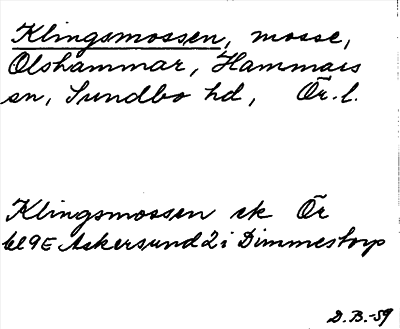 Klingsmossen, mosse,
Olshammar, Hammars
sn, Sundbo hd, Ör. l.
Klingsmossen ek Ör
bl 9E Askersund 2 i Dimmestorp
D.B.-59